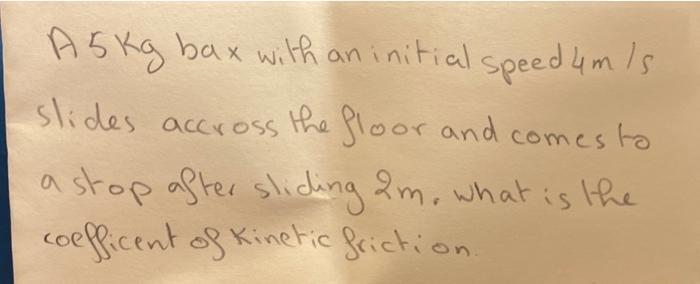 A 5 Kg bax with an initial speed 4m/s
slides accross the floor and comes to
a stop after sliding 2m. what is the
coefficent of Kinetic friction.